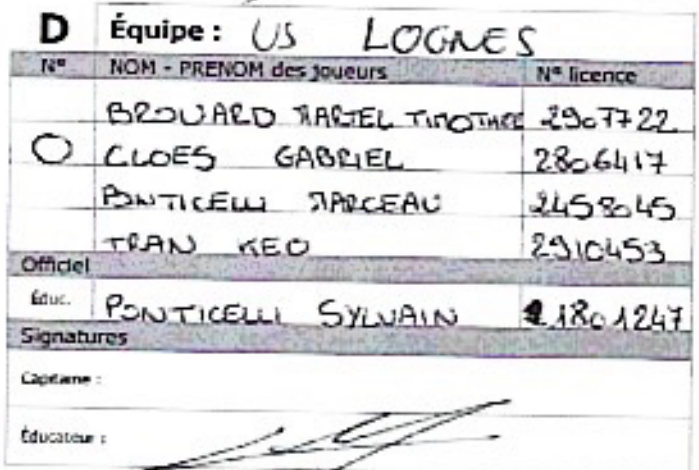 D Équipe : US LOGNES
N° NOM - PRENOM des joueurs N° licence
BROUARD MARTEL TIMOTHEE 2907722
O CLOES GABRIEL 2806417
PONTICELLI MARCEAU 2458045
TRAN KEO 2910453
Officiel
Éduc. PONTICELLI SYLVAIN 1801247
Signatures
Capitaine :
Éducateur :